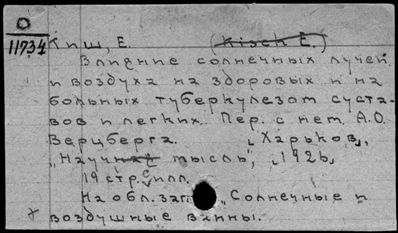 О
11734
Киш, Е. (Kisch E.)
Влияние солнечных лучей
и воздуха на здоровых и на
больных туберкулезом суста-
вов и легких. Пер. с нем. А.О.
Верцберга. „Харьков„,
„Научная мысль„, „1926„
19 стр. с илл.
На обл. заг. „Солнечные и
воздушные ванны.